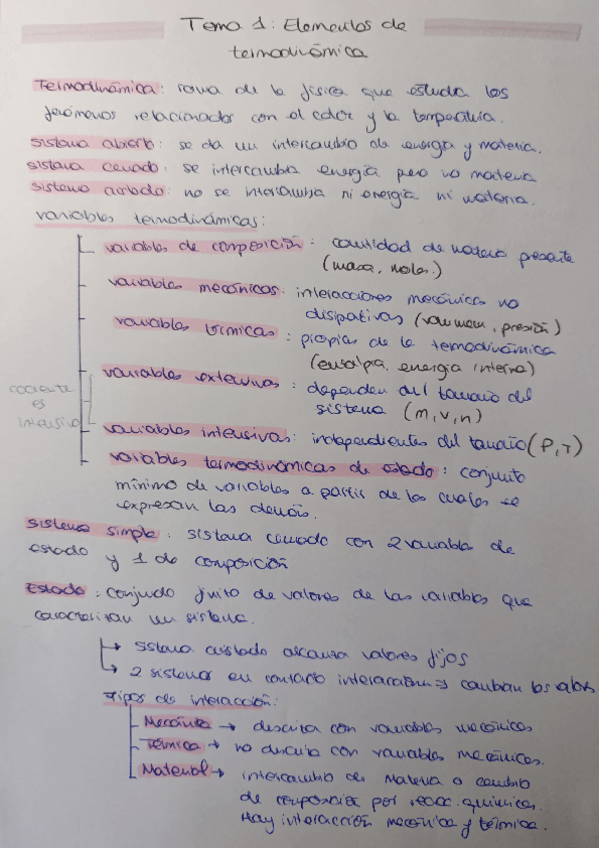 Tema 1: Elementos de
termodinámica
Termodinámica: rama de la física que estudia los
fenómenos relacionados con el calor y la temperatura.
sistema abierto: se da un intercambio de energía y materia.
sistema cerrado: se intercambia energía pero no materia
sistema aislado: no se intercambia ni energía ni materia.
variables termodinámicas:
variables de composición: cantidad de materia presente
(masa, moles.)
variables mecánicas: interacciones mecánica no
disipativas (volumen, presión)
variables térmicas: propias de la termodinámica
(entalpía, energía interna)
variables extensivas: dependen del tamaño del
sistema (m, v, n)
cociente
es
intensivo
variables intensivas: independientes del tamaño (P, T)
variables termodinámicas de estado: conjunto
mínimo de variables a partir de las cuales se
expresan las demás.
sistema simple: sistema cerrado con 2 variables de
estado y 1 de composición
Estado: conjunto finito de valores de las variables que
caracterizan un sistema.
→ sistema aislado alcanza valores fijos
→ 2 sistemas en contacto interaccionan ⇒ cambian los valores
Tipos de interacción:
Mecánica → descrita con variables mecánicas
Térmica → no descrita con variables mecánicas.
Material → intercambio de materia o cambio
de composición por reacc. químicas.
Hay interacción mecánica y térmica.